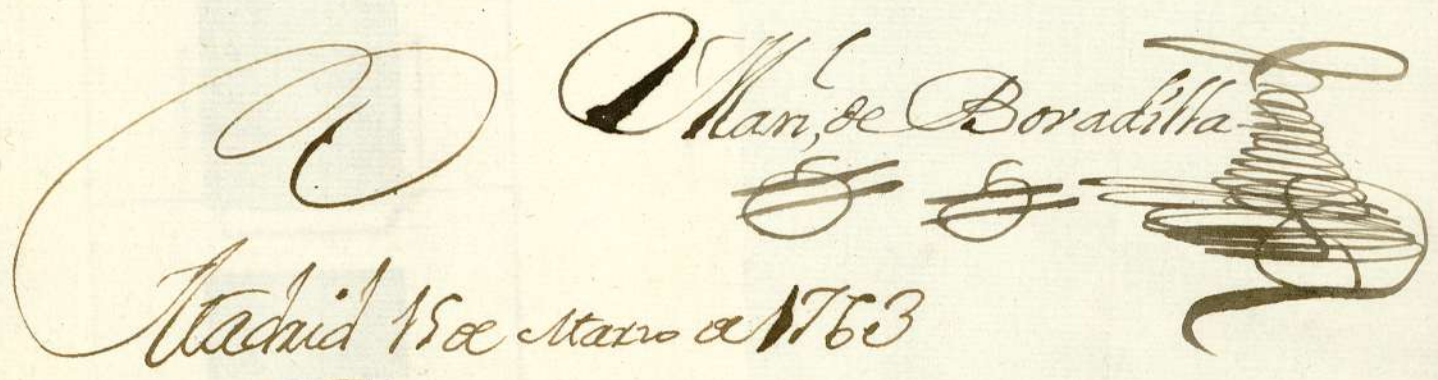 Manl, de Bovadilla
Madrid 15 de Marzo de 1763